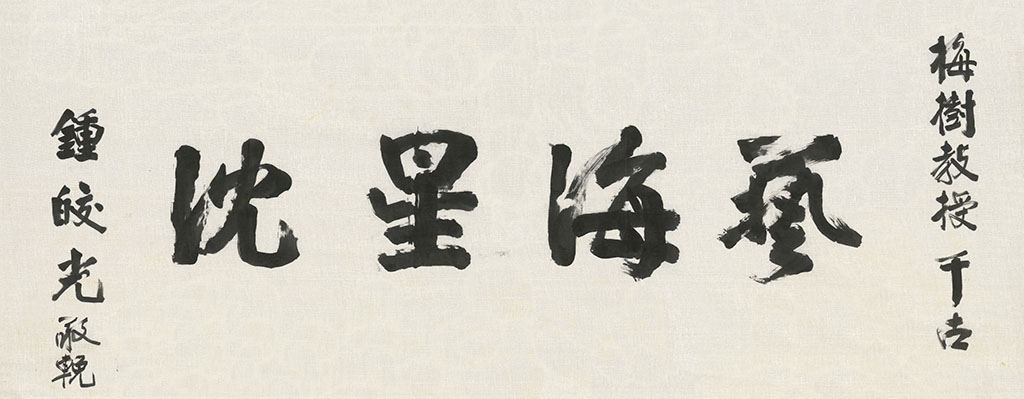 梅樹教授千古
藝海星沈
鍾皎光敬輓